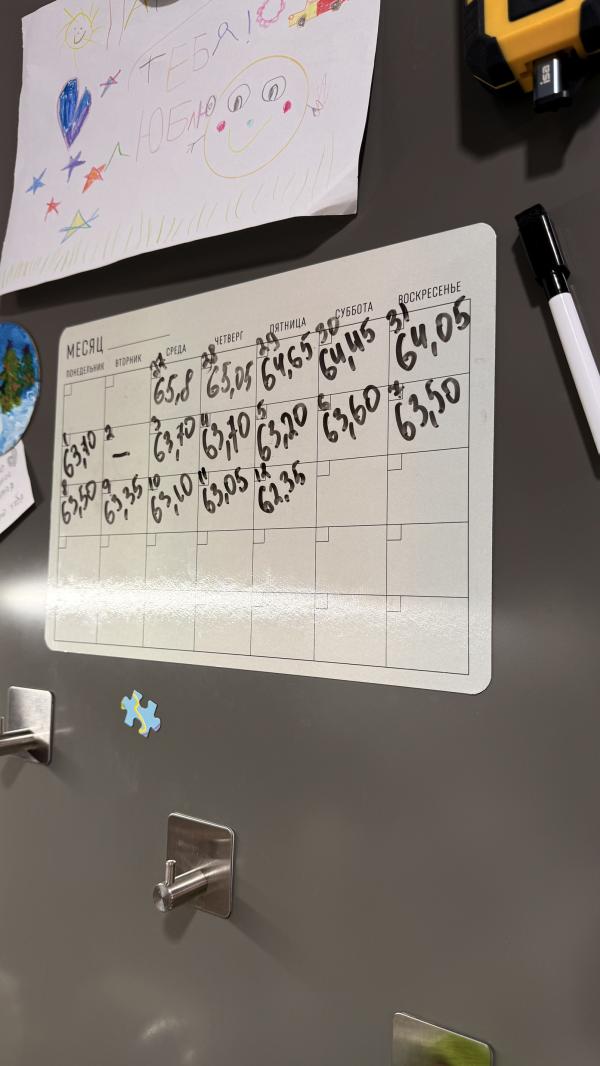 ТЕБЯ!
ЛЮБЛЮ
МЕСЯЦ
ПОНЕДЕЛЬНИК ВТОРНИК СРЕДА ЧЕТВЕРГ ПЯТНИЦА СУББОТА ВОСКРЕСЕНЬЕ
27 28 29 30 31
65,8 65,05 64,65 64,45 64,05
1 2 3 4 5 6 7
63,70 – 63,70 63,70 63,20 63,60 63,50
8 9 10 11 12
63,50 63,35 63,10 63,05 62,35